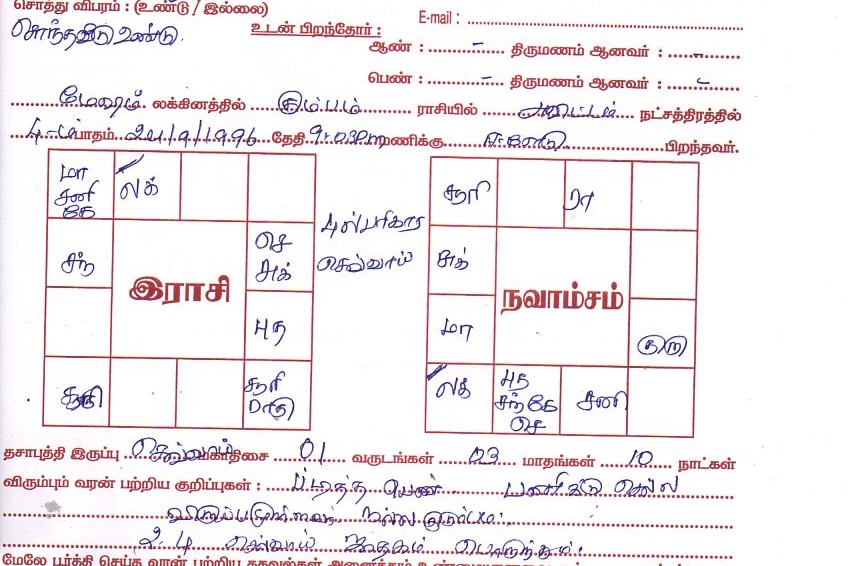 சொத்து விபரம் : (உண்டு / இல்லை)
E-mail :
சொந்தவீடு உண்டு.
உடன் பிறந்தோர் :
ஆண் : – திருமணம் ஆனவர் : –
பெண் : – திருமணம் ஆனவர் : –
மேஷம் லக்கினத்தில் கும்பம் ராசியில் அவிட்டம் நட்சத்திரத்தில்
4-ம் பாதம் 24/9/1996 தேதி 9-03PM மணிக்கு ஈரோடு பிறந்தவர்.
மா சனி கே
லக்
சூரி
ரா
சந்
செ சுக்
4ல் பரிகார செவ்வாய்
சுக்
இராசி
நவாம்சம்
புத
மா
குரு
குரு
சூரி ராகு
லக்
புத சந் கே செ
சனி
தசாபுத்தி இருப்பு செவ்வாய் மகாதிசை 01 வருடங்கள் 03 மாதங்கள் 10 நாட்கள்
விரும்பும் வரன் பற்றிய குறிப்புகள் : படித்த பெண் பணிக்கு செல்ல
விருப்பமுள்ளவர் நல்ல குடும்பம்.
2.4 செவ்வாய் ஜாதகம் பொருந்தும்.
மேலே பூர்த்தி செய்த வரன் பற்றிய தகவல்கள் அனைத்தும்